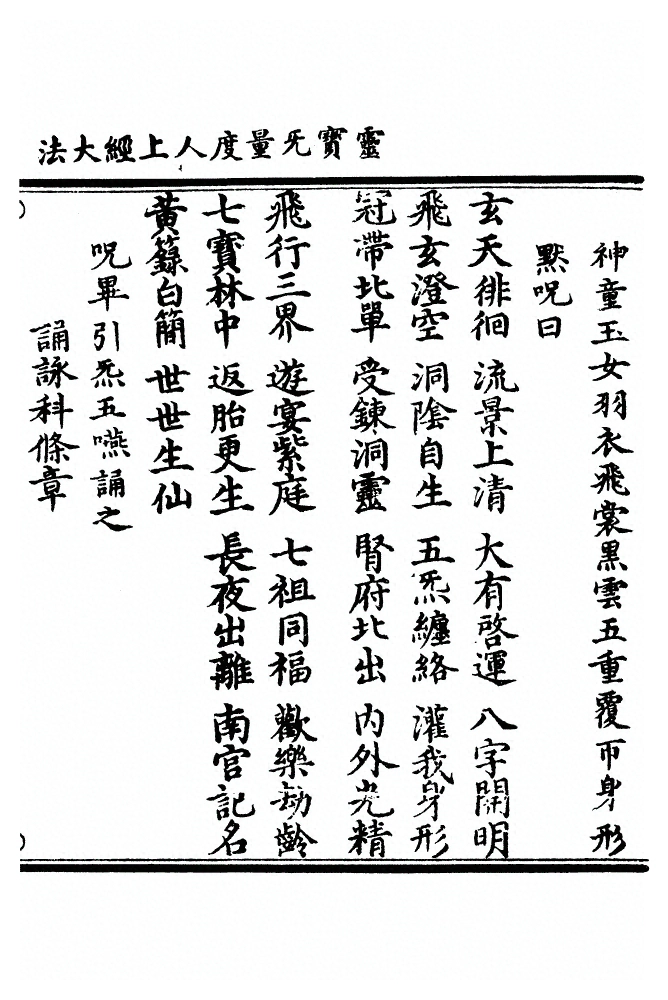 靈寶旡量度人上經大法
神童玉女羽衣飛裳黑雲五重覆帀身形
默呪曰
玄天徘徊 流景上清 大有啓運 八字開明
飛玄澄空 洞陰自生 五炁纏絡 灌我身形
冠帶北單 受鍊洞靈 腎府北出 內外光精
飛行三界 遊宴紫庭 七祖同福 歡樂劫齡
七寶林中 返胎更生 長夜出離 南宮記名
黃籙白簡 世世生仙
呪畢引炁五嚥誦之
誦詠科條章